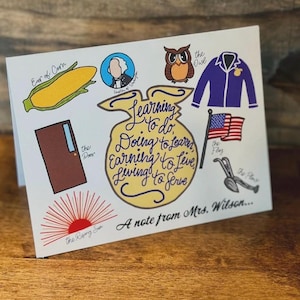 Ear of Corn
the
Owl
Learning
to do,
Doing to Learn
Earning to Live
Living to Serve
the
Door
the
Flag
the Plow
the Rising Sun
A note from Mrs. Wilson...